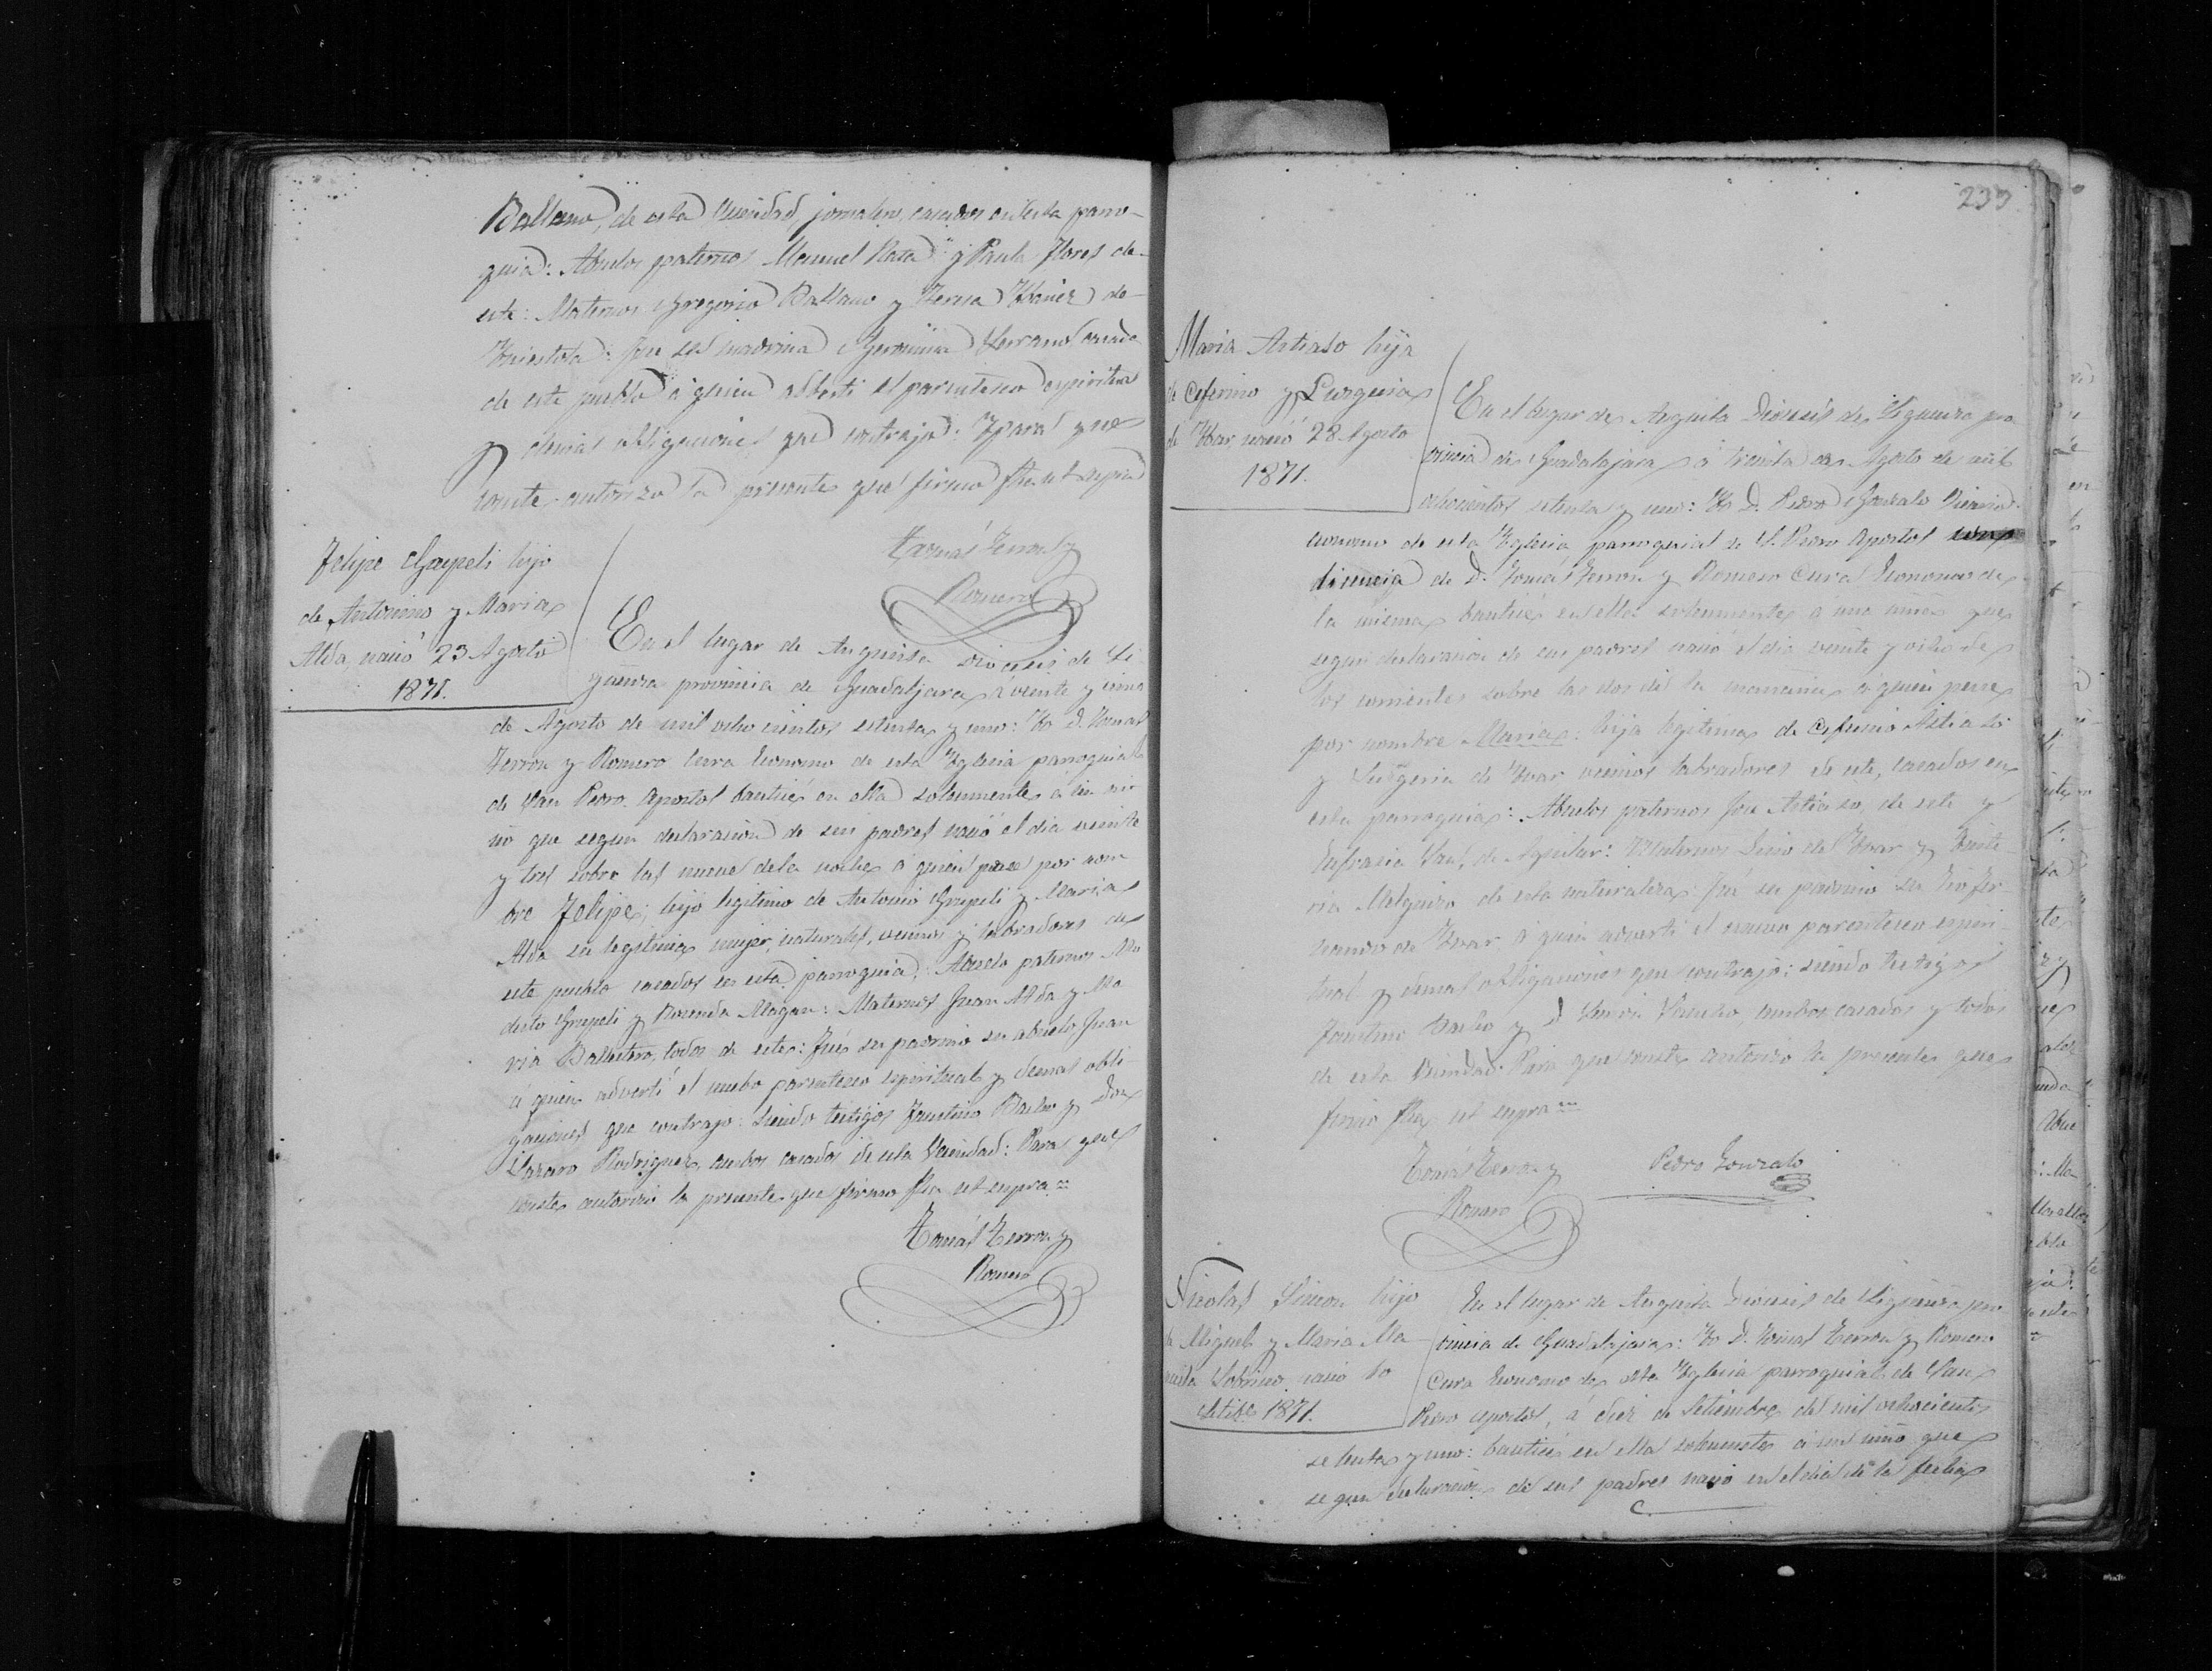 Ballano, de esta Vecindad jornalero, casados en esta parro-
quia: Abuelos paternos Manuel Rata y Paula Flores de
este: Maternos Gregorio Ballano y Teresa de
Iniestola: fue su madrina Geronima Serrano casada
de este pueblo á quien adverti el parentesco espiritual
y demas obligaciones que contrajo: Y para que
conste autorizo la presente que firmo fha ut supra
Tomás Terron y
Romero
Felipe Grupeli hijo
de Antonino y Maria
Alda, nació 23 Agosto
1871.
En el lugar de Anguita Diocesis de Si
guenza provincia de Guadalajara á veinte y cinco
de Agosto de mil ocho cientos setenta y uno: Yo D. Tomas
Terron y Romero Cura Economo de esta Yglesia parroquial
de San Pedro Apostol bauticé en ella solemnemente á un ni
ño que segun declaracion de sus padres nació el dia veinte
y tres sobre las nueve de la noche á quien puse por nom
bre Felipe; hijo legitimo de Antonio Grupeli y Maria
Alda su legitima mujer, naturales, vecinos y labradores de
este pueblo casados en esta parroquia: Abuelo paternos Mo
desto Grupeli y Rosenda Magan: Maternos Juan Alda y Ma
ria Ballestero, todos de este: fué su padrino su abuelo Juan
á quien adverti el nuebo parentesco espiritual y demas obli-
gaciones que contrajo: Siendo testigos Faustino Bacho y Don
Lazaro Rodriguez, ambos casados de esta Vecindad: Para que
conste autorizo la presente que firmo fha ut supra
Tomás Terron y
Romero
233
Maria Astiaso hija
de Ceferino y
de Ybar, nació 28 Agosto
1871.
En el lugar de Anguita Diocesis de Siguenza pro
vincia de Guadalajara á treinta de Agosto de mil
ochocientos setenta y uno: Yo D. Pedro Gonzalo
economo de esta Yglesia parroquial de S. Pedro Apostol con
licencia de D. Tomás Terron y Romero Cura Economo de
la misma bauticé en ella solemnemente á una niña que
segun declaracion de sus padres nació el dia veinte y ocho de
los corrientes sobre las dos de la mañana á quien puse
por nombre Maria: hija legitima de Ceferino Astiaso
y de Ybar vecinos labradores de este, casados en
esta parroquia: Abuelos paternos José Astiaso, de este y
Eufrasia Sanz, de Aguilar: Maternos Lino de Ybar y Quite
ria Melguizo de esta naturaleza: fué su padrino su tio Fer
nando de Ybar á quien adverti el nuevo parentesco espiri
tual y demas obligaciones que contrajo: siendo testigos
Faustino Bacho y D. Simon Sancho ambos casados y todos
de esta Vecindad. Para que conste autorizo la presente que
firmo fha ut supra
Tomás Terron y
Romero
Pedro Gonzalo
Nicolas Simon hijo
de Miguel y Maria Ma
Sobrino nació 10
Setbe 1871.
En el lugar de Anguita Diocesis de Siguenza pro
vincia de Guadalajara: Yo D. Tomas Terron y Romero
Cura Economo de esta Yglesia parroquial de San
Pedro apostol, á diez de Setiembre de mil ochocientos
setenta y uno: bauticé en ella solemnemente á un niño que
segun declaracion de sus padres nació en el dia de la fecha